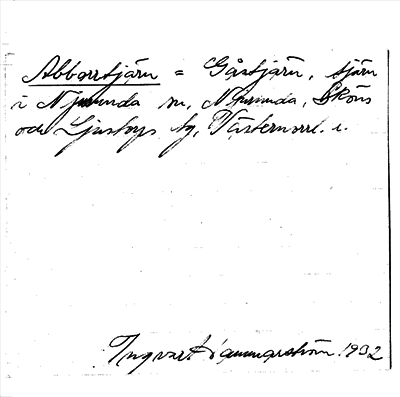 Abborrtjärn = Gåstjärn, tjärn
i Njurunda sn, Njurunda, Sköns
och Ljustorps tg, Västernorrl. l.
Ingvar Hammarström 1932